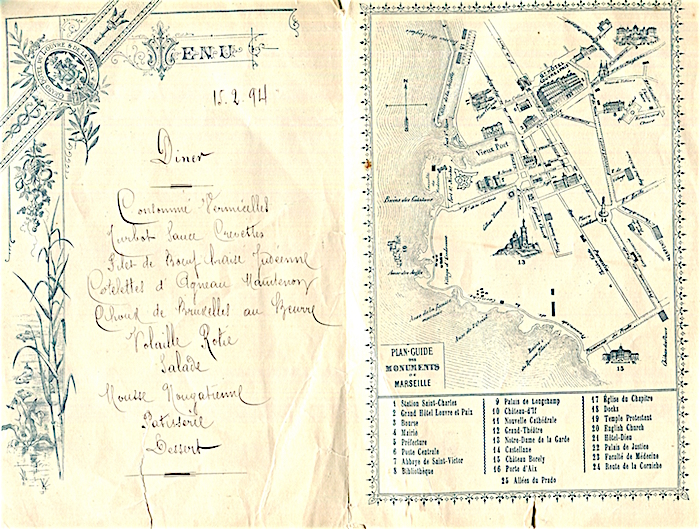 MENU
15.2.94
Diner
Consommé Vermicelles
Turbot Sauce Crevettes
Filet de Boeuf
Cotelettes d'Agneau Maintenon
Choux de Bruxelles au Beurre
Volaille Rotie
Salade
Mousse Nougatienne
Patisserie
Dessert
Vieux Port
13
15
PLAN-GUIDE
DES
MONUMENTS
DE
MARSEILLE
1 Station Saint-Charles
2 Grand Hôtel Louvre et Paix
3 Bourse
4 Mairie
5 Préfecture
6 Poste Centrale
7 Abbaye de Saint-Victor
8 Bibliothèque
9 Palais de Longchamp
10 Château-d'If
11 Nouvelle Cathédrale
12 Grand-Théâtre
13 Notre-Dame de la Garde
14 Castellane
15 Château Borely
16 Porte d'Aix
17 Église du Chapitre
18 Docks
19 Temple Protestant
20 English Church
21 Hôtel-Dieu
22 Palais de Justice
23 Faculté de Médecine
24 Reste de la Corniche
25 Allées du Prado